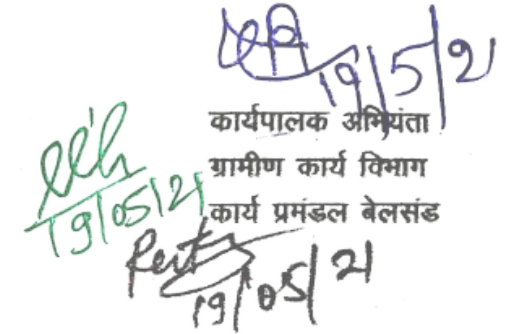 19/5/21
कार्यपालक अभियंता
ग्रामीण कार्य विभाग
कार्य प्रमंडल बेलसंड
19/05/21
19/05/21